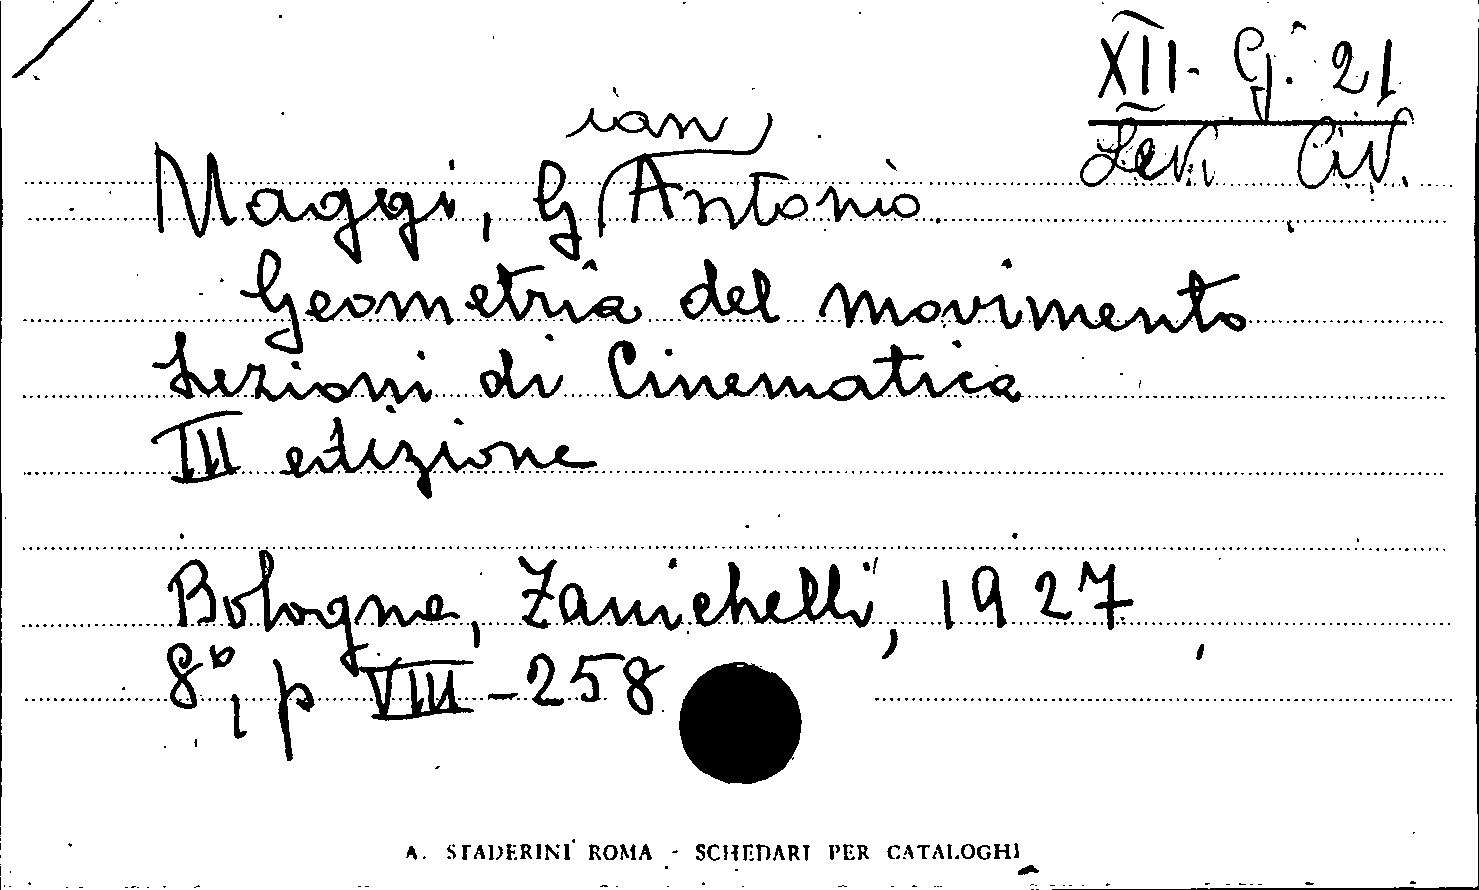 XII- G. 21
Lev. Civ.
ian
Maggi, G Antonio
Geometria del movimento
Lezioni di Cinematica
III edizione
Bologna, Zanichelli, 1927
8°, p VIII-258
A. STADERINI ROMA - SCHEDARI PER CATALOGHI